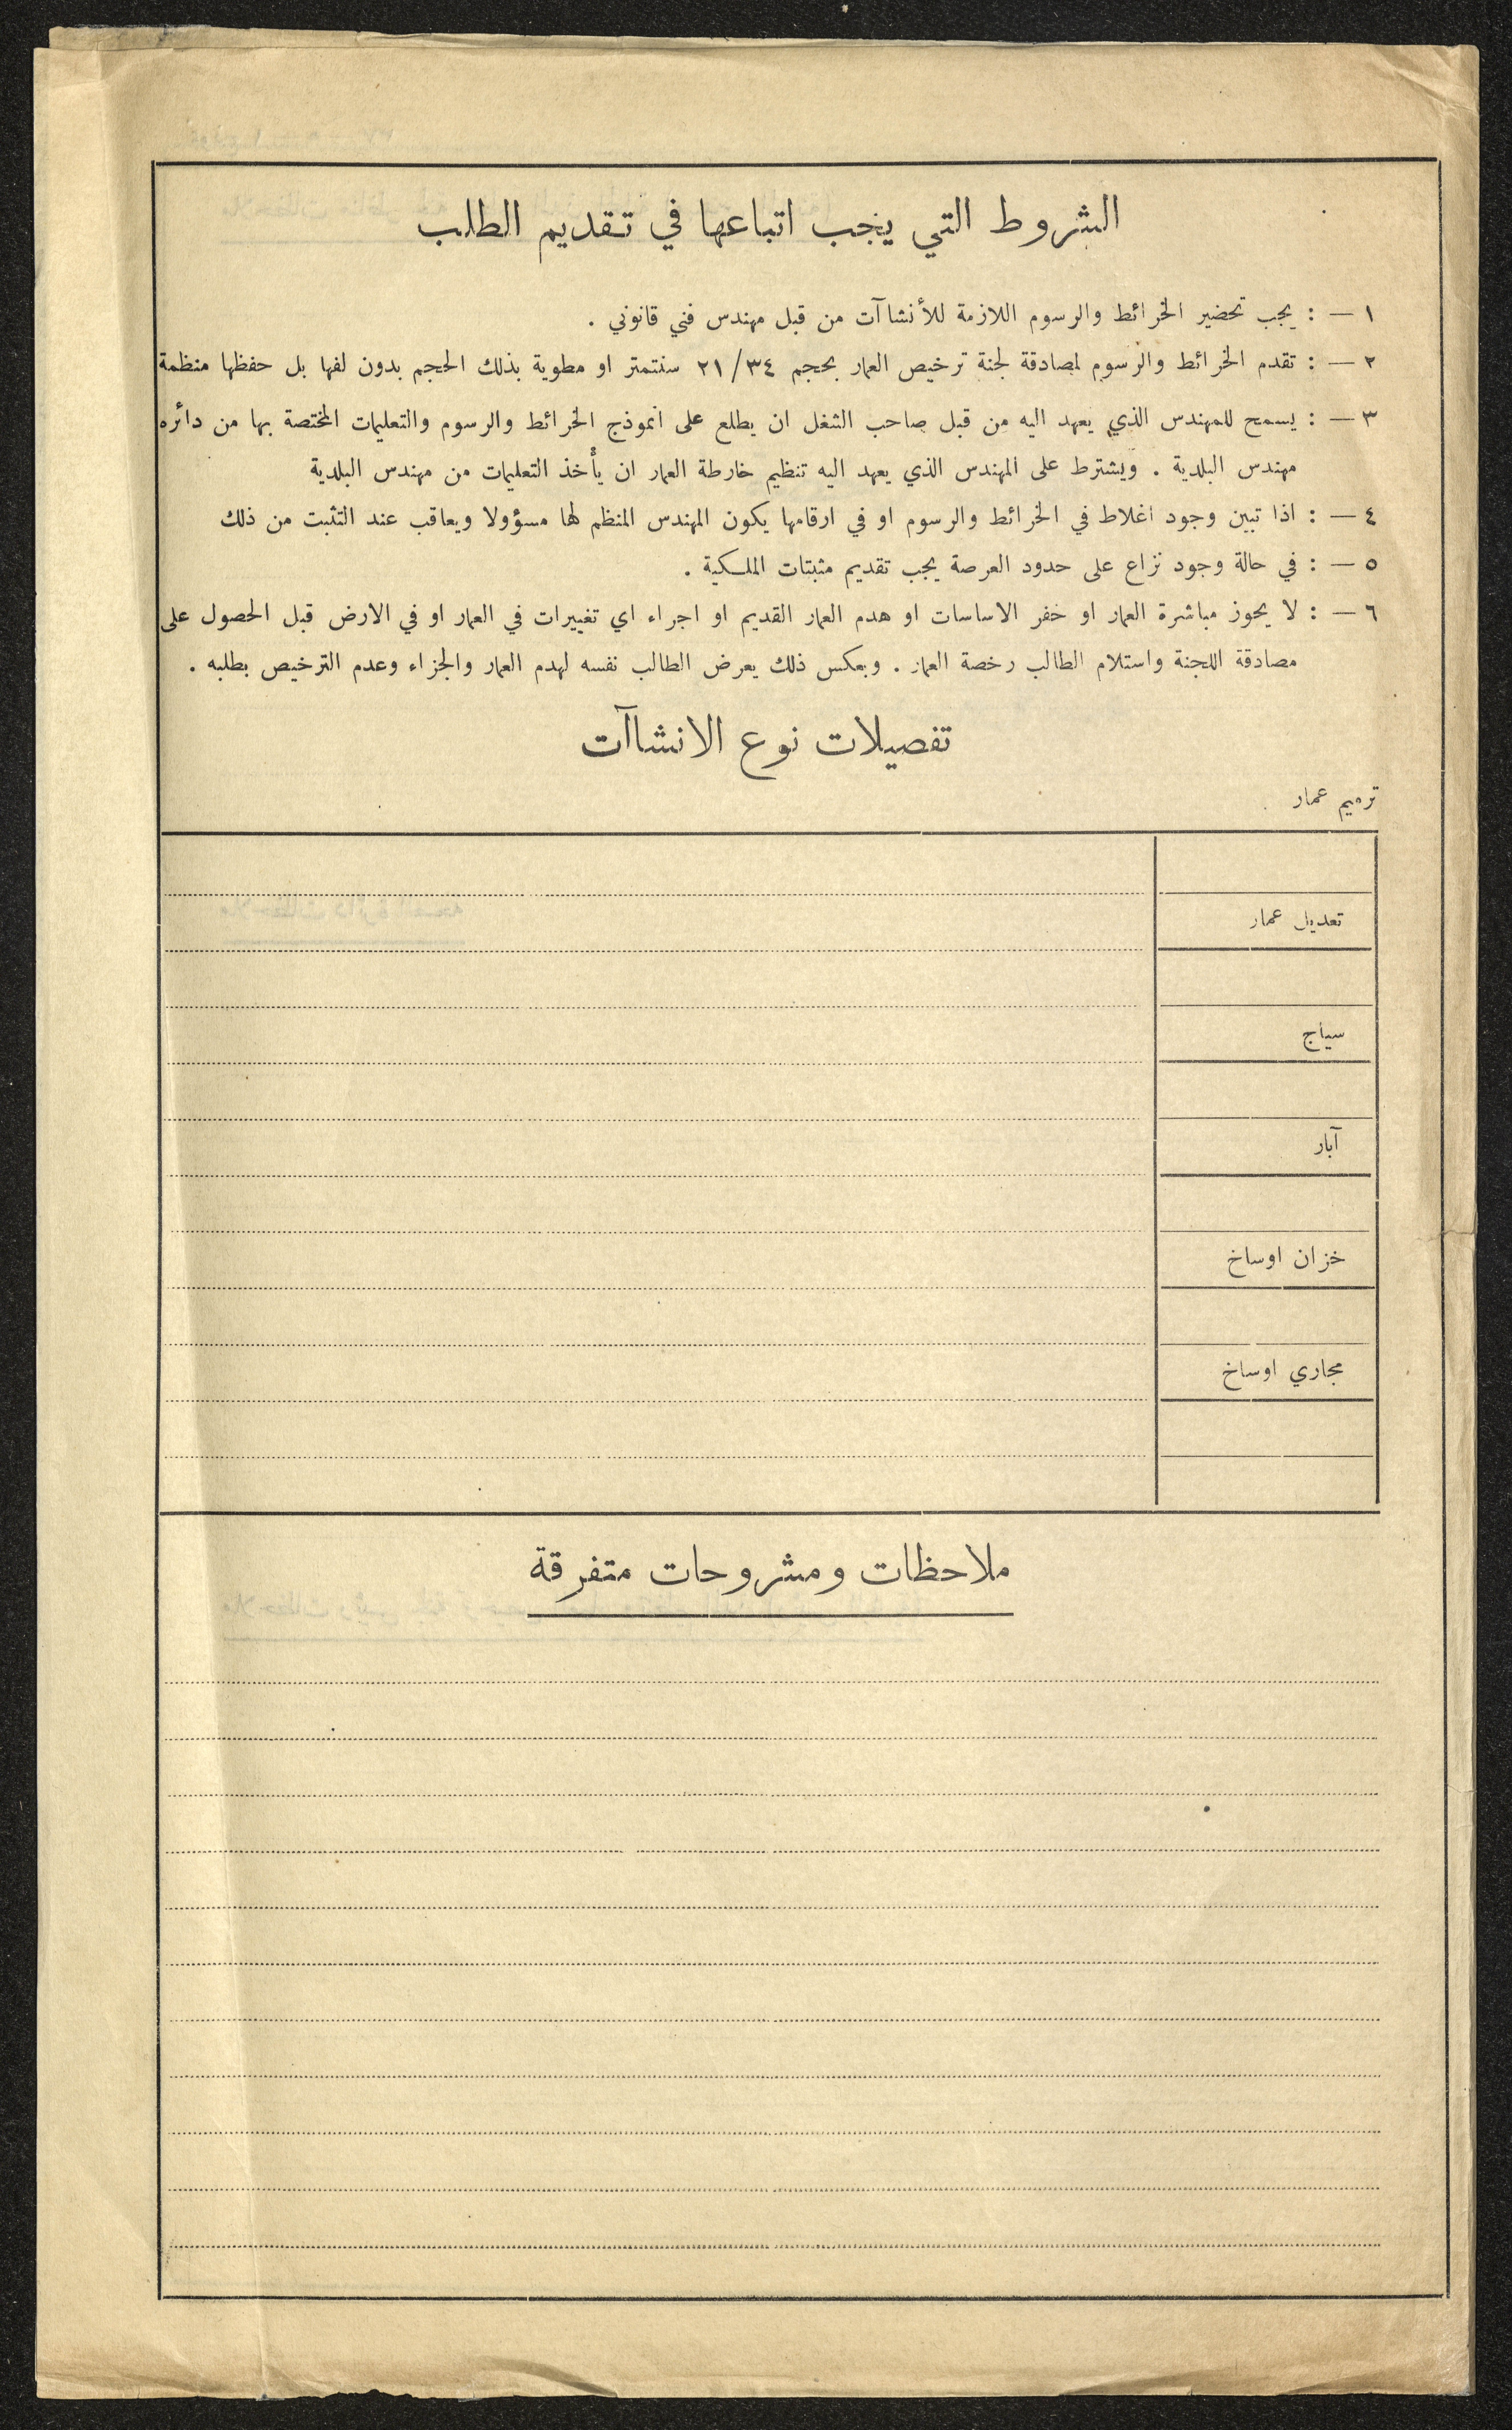 الشروط التي يجب اتباعها في تقديم الطلب
١ — : يجب تحضير الخرائط والرسوم اللازمة للأنشاآت من قبل مهندس فني قانوني .
٢ — : تقدم الخرائط والرسوم لمصادقة لجنة ترخيص العمار بحجم ٢١/٣٤ سنتمتر او مطوية بذلك الحجم بدون لفها بل حفظها منظمة
٣ — : يسمح للمهندس الذي يعهد اليه من قبل صاحب الشغل ان يطلع على انموذج الخرائط والرسوم والتعليمات المختصة بها من دائره
مهندس البلدية . ويشترط على المهندس الذي يعهد اليه تنظيم خارطة العمار ان يأخذ التعليمات من مهندس البلدية
٤ — : اذا تبين وجود اغلاط في الخرائط والرسوم او في ارقامها يكون المهندس المنظم لها مسؤولا ويعاقب عند التثبت من ذلك
٥ — : في حالة وجود نزاع على حدود العرصة يجب تقديم مثبتات الملكية .
٦ — : لا يجوز مباشرة العمار او حفر الاساسات او هدم العمار القديم او اجراء اي تغييرات في العمار او في الارض قبل الحصول على
مصادقة اللجنة واستلام الطالب رخصة العمار . وبعكس ذلك يعرض الطالب نفسه لهدم العمار والجزاء وعدم الترخيص بطلبه .
تفصيلات نوع الانشاآت
ترميم عمار
تعديل عمار
سياج
آبار
خزان اوساخ
مجاري اوساخ
ملاحظات ومشروحات متفرقة